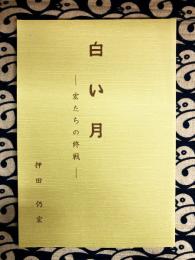 白い月
―宏たちの終戦―
押田仍宏